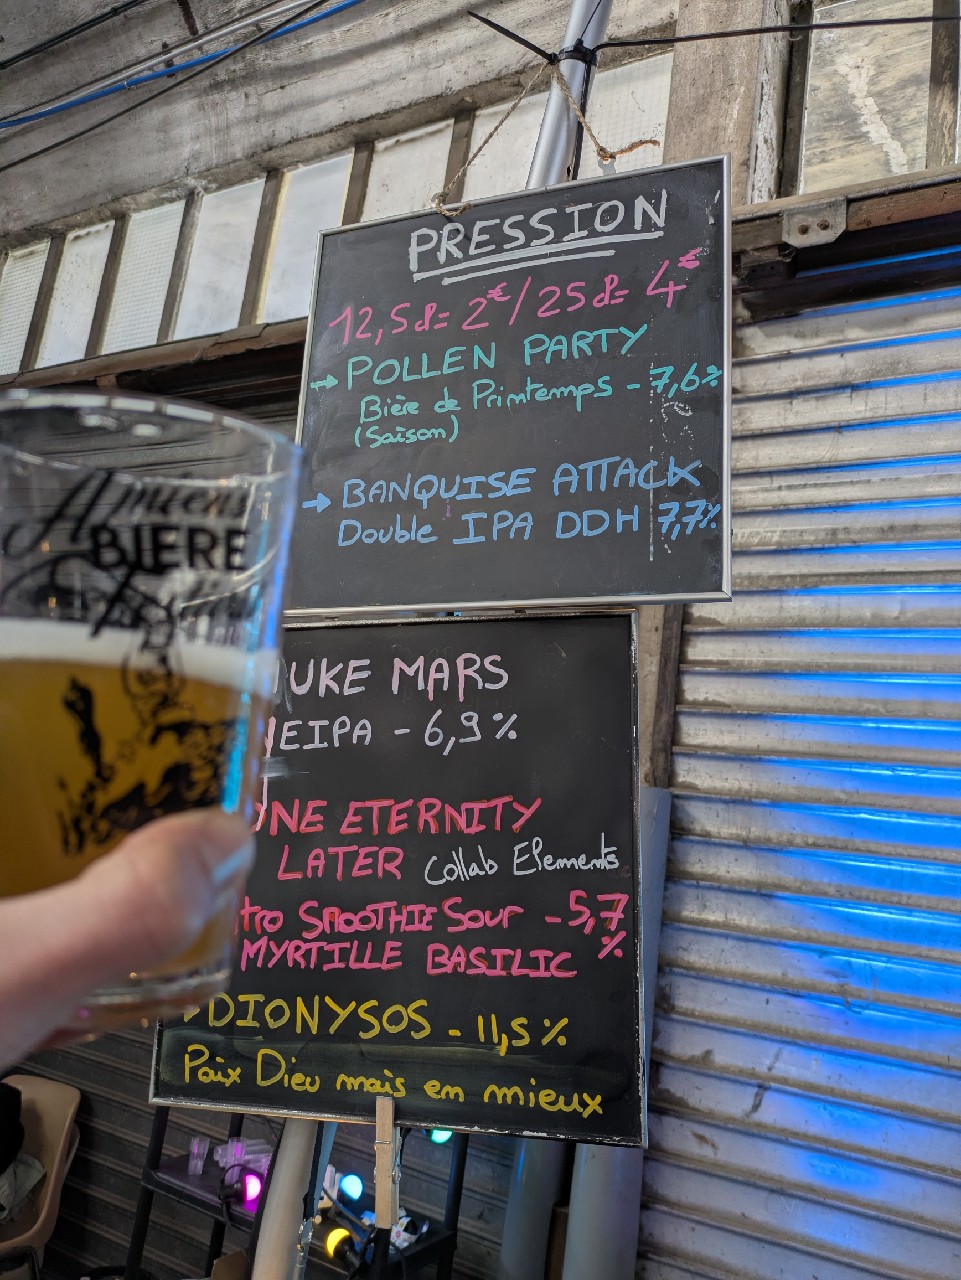 PRESSION
12,5cl= 2€/25cl= 4€
→ POLLEN PARTY
Bière de Printemps - 7,6%
(Saison)
→ BANQUISE ATTACK
Double IPA DDH 7,7%
UKE MARS
NEIPA - 6,9%
ONE ETERNITY
LATER Collab Elements
tro SMOOTHIE Sour - 5,7
%
MYRTILLE BASILIC
DIONYSOS - 11,5%
Paix Dieu mais en mieux
Amiens
BIÈRE